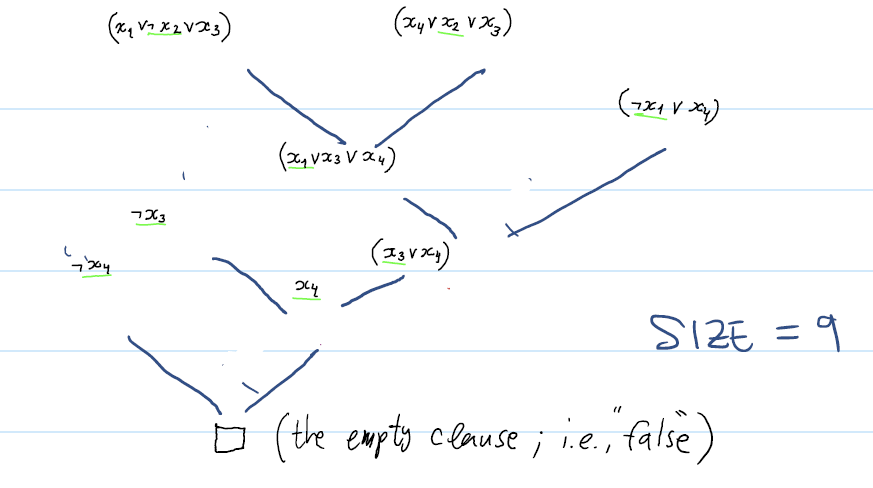 (x₁ ∨ ¬x₂ ∨ x₃) (x₄ ∨ x₂ ∨ x₃)
(¬x₁ ∨ x₄)
(x₁ ∨ x₃ ∨ x₄)
¬x₃
(x₃ ∨ x₄)
¬x₄
x₄
SIZE = 9
□ (the empty clause ; i.e., "false")